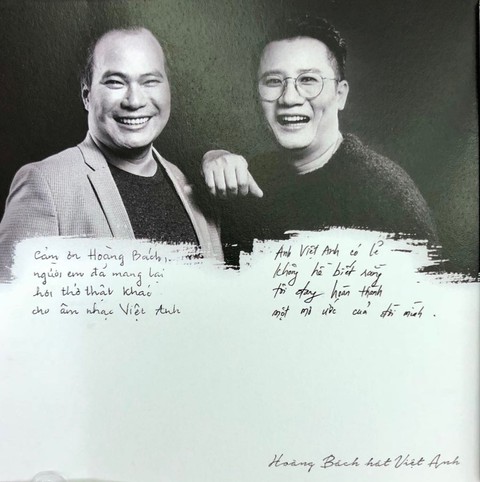 Cảm ơn Hoàng Bách,
người em đã mang lại
hơi thở thật khác
cho âm nhạc Việt Anh
Anh Việt Anh có lẽ
không hề biết rằng
tôi đang hoàn thành
một mơ ước của đời mình.
Hoàng Bách hát Việt Anh